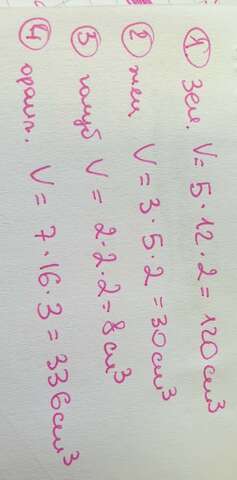 ① Зел. V = 5·12·2 = 120 см³
② жел. V = 3·5·2 = 30 см³
③ голуб V = 2·2·2 = 8 см³
④ оранж. V = 7·16·3 = 336 см³